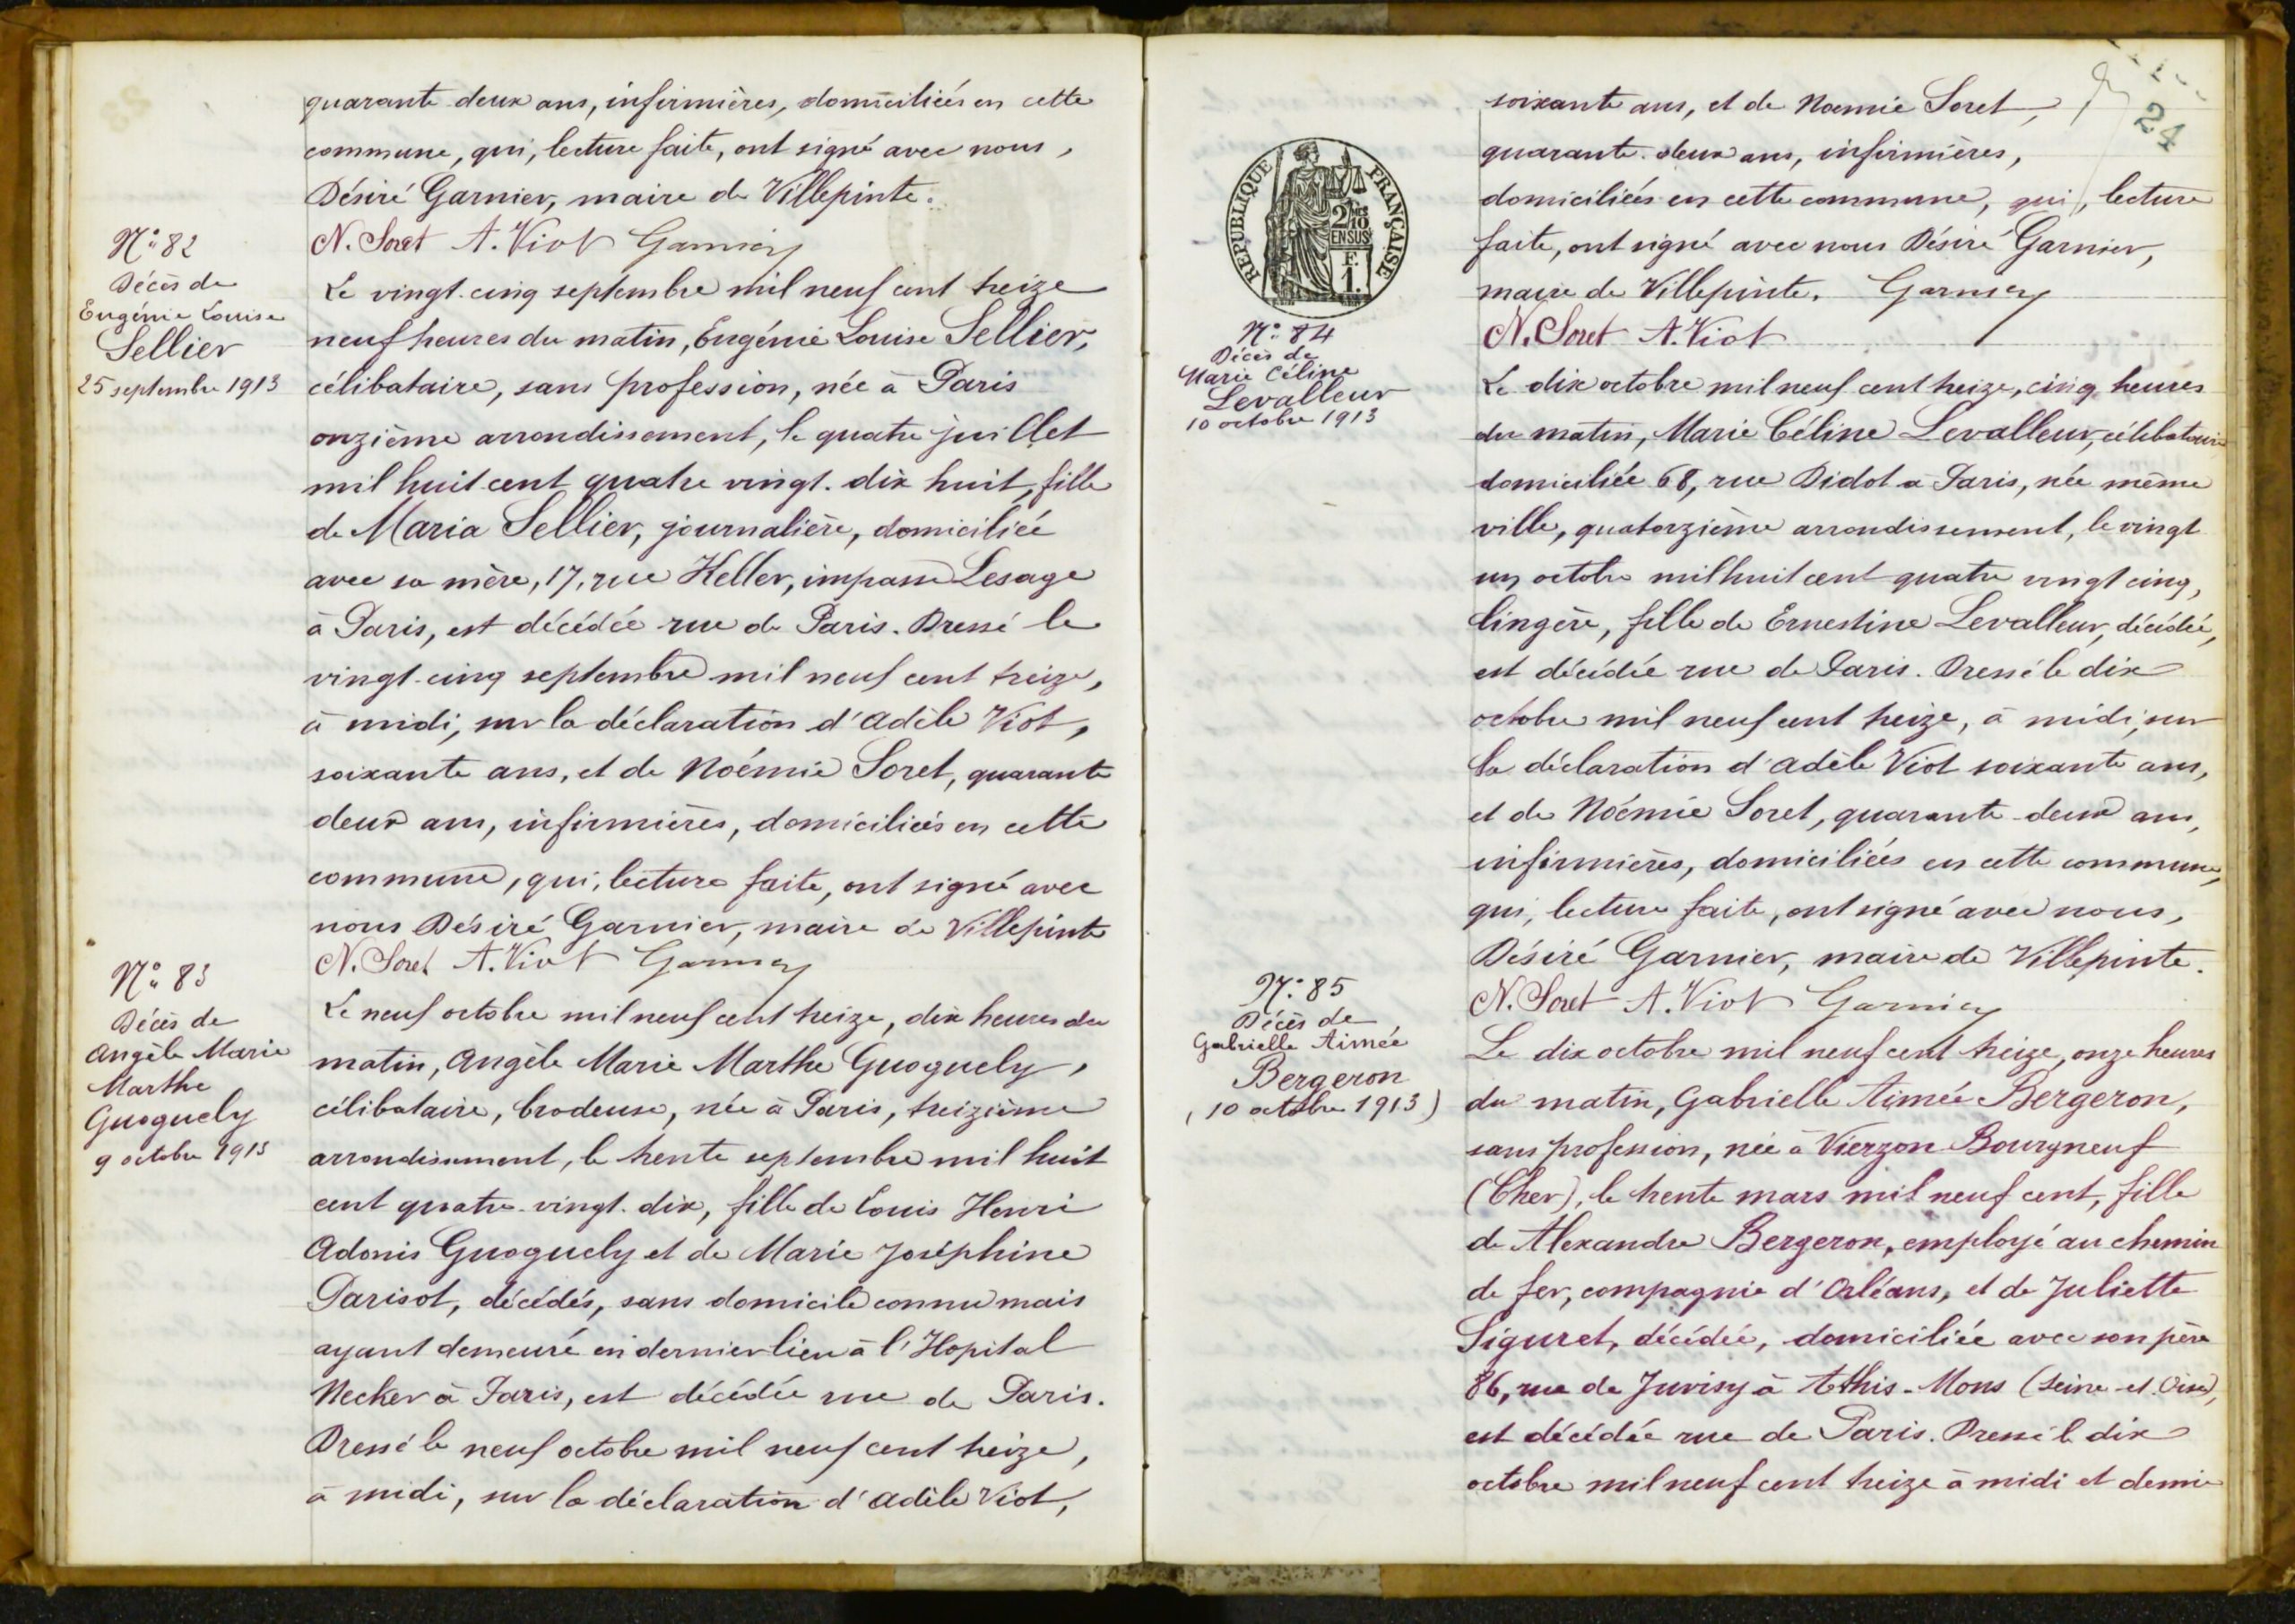 quarante deux ans, infirmières, domiciliées en cette
commune, qui, lecture faite, ont signé avec nous,
Désiré Garnier, maire de Villepinte.
N. Soret A. Viot Garnier
N° 82
Décès de
Eugénie Louise
Sellier
25 septembre 1913
Le vingt-cinq septembre mil neuf cent treize
neuf heures du matin, Eugénie Louise Sellier,
célibataire, sans profession, née à Paris
onzième arrondissement, le quatre juillet
mil huit cent quatre vingt-dix huit, fille
de Maria Sellier, journalière, domiciliée
avec sa mère, 17, rue Keller, impasse Lesage
à Paris, est décédée rue de Paris. Dressé le
vingt-cinq septembre mil neuf cent treize,
à midi, sur la déclaration d'Adèle Viot,
soixante ans, et de Noémie Soret, quarante
deux ans, infirmières, domiciliées en cette
commune, qui, lecture faite, ont signé avec
nous Désiré Garnier, maire de Villepinte
N. Soret A. Viot Garnier
N° 83
Décès de
Angèle Marie
Marthe
Guoguely
9 octobre 1913
Le neuf octobre mil neuf cent treize, dix heures du
matin, Angèle Marie Marthe Guoguely,
célibataire, brodeuse, née à Paris, treizième
arrondissement, le trente septembre mil huit
cent quatre-vingt-dix, fille de Louis Henri
Adonis Guoguely et de Marie Joséphine
Parisot, décédés, sans domicile connu mais
ayant demeuré en dernier lieu à l'Hopital
Necker à Paris, est décédée rue de Paris.
Dressé le neuf octobre mil neuf cent treize,
à midi, sur la déclaration d'Adèle Viot,
24
soixante ans, et de Noemie Soret,
quarante-deux ans, infirmières,
domiciliées en cette commune, qui, lecture
faite, ont signé avec nous Désiré Garnier,
maire de Villepinte. Garnier
N. Soret A. Viot
RÉPUBLIQUE FRANÇAISE
2/10
EN SUS
F.
1.
N° 84
Décès de
Marie Céline
Levalleur
10 octobre 1913
Le dix octobre mil neuf cent treize, cinq heures
du matin, Marie Céline Levalleur, célibataire
domiciliée 68, rue Didot à Paris, née même
ville, quatorzième arrondissement, le vingt
un octobre mil huit cent quatre vingt cinq,
lingère, fille de Ernestine Levalleur, décédée,
est décédée rue de Paris. Dressé le dix
octobre mil neuf cent treize, à midi, sur
la déclaration d'Adèle Viot soixante ans,
et de Noémie Soret, quarante-deux ans,
infirmières, domiciliées en cette commune,
qui, lecture faite, ont signé avec nous,
Désiré Garnier, maire de Villepinte.
N. Soret A. Viot Garnier
N° 85
Décès de
Gabrielle Aimée
Bergeron
(10 octobre 1913)
Le dix octobre mil neuf cent treize, onze heures
du matin, Gabrielle Aimée Bergeron,
sans profession, née à Vierzon-Bourgneuf
(Cher), le trente mars mil neuf cent, fille
de Alexandre Bergeron, employé au chemin
de fer, compagnie d'Orléans, et de Juliette
Siguret, décédée, domiciliée avec son père
86, rue de Juvisy à Athis-Mons (Seine-et-Oise),
est décédée rue de Paris. Dressé le dix
octobre mil neuf cent treize à midi et demie